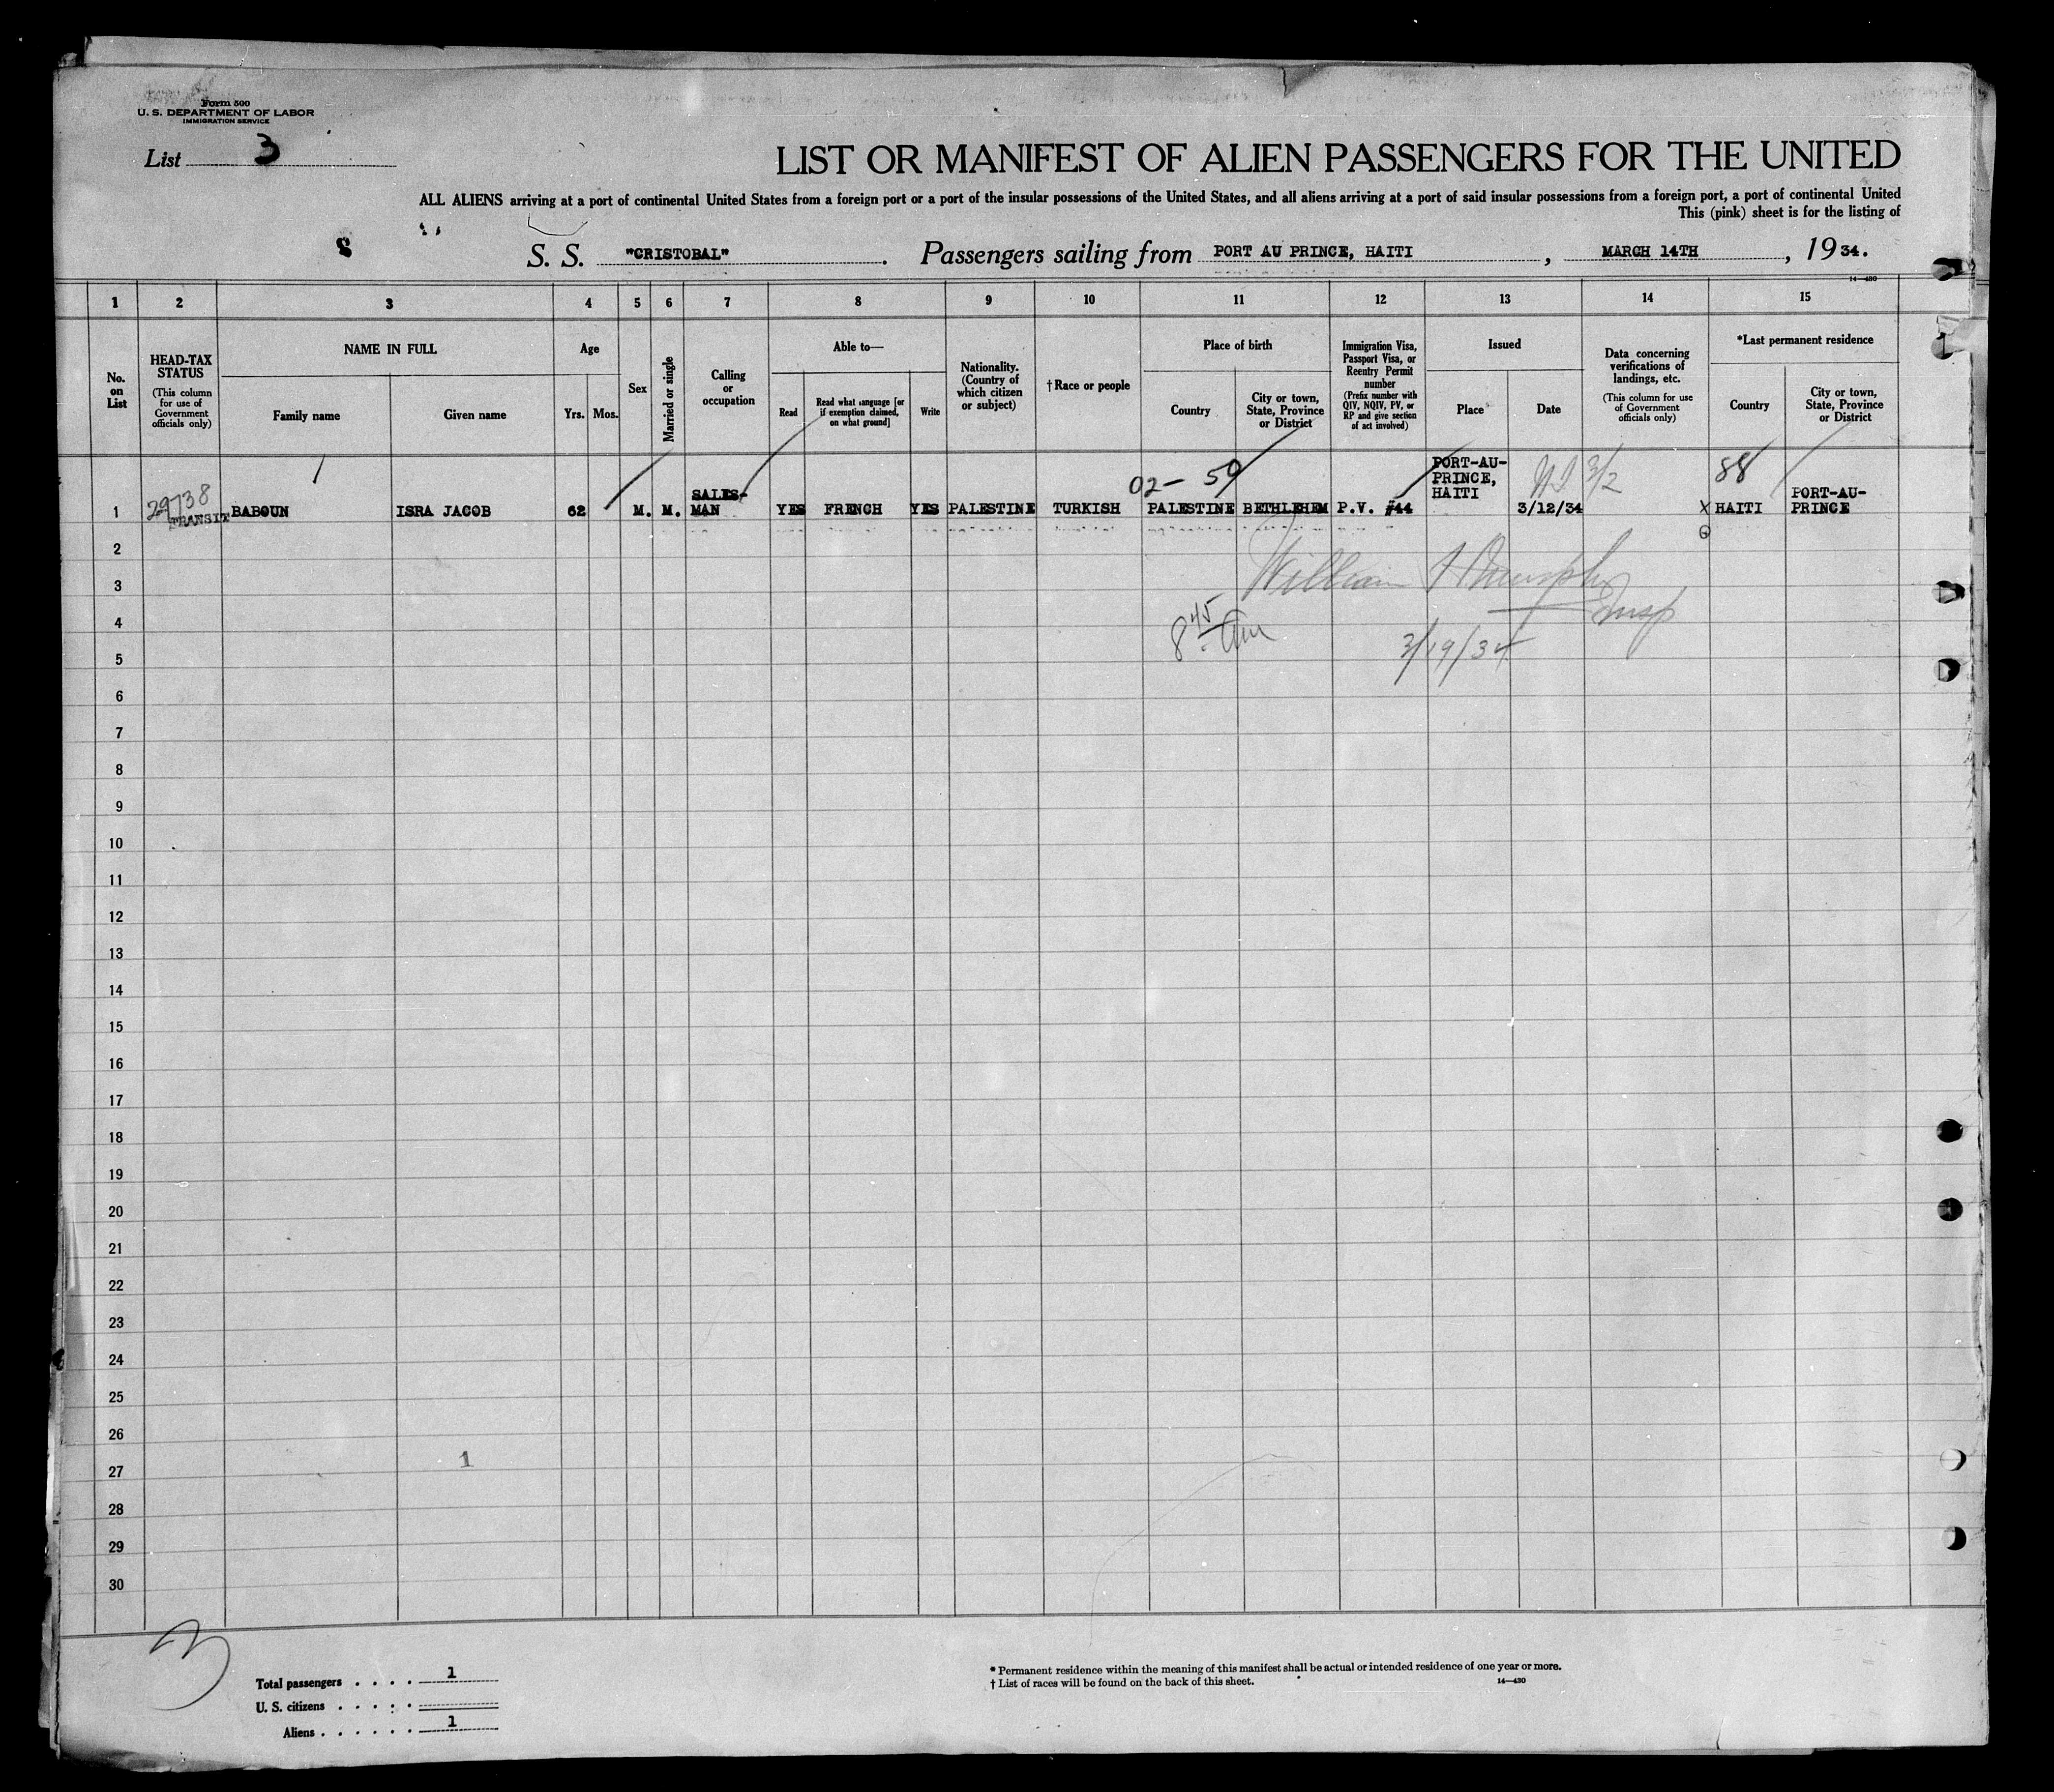 Form 500
U. S. DEPARTMENT OF LABOR
IMMIGRATION SERVICE
List 3
LIST OR MANIFEST OF ALIEN PASSENGERS FOR THE UNITED
ALL ALIENS arriving at a port of continental United States from a foreign port or a port of the insular possessions of the United States, and all aliens arriving at a port of said insular possessions from a foreign port, a port of continental United
This (pink) sheet is for the listing of
S. S. "CRISTOBAL". Passengers sailing from PORT AU PRINCE, HAITI, MARCH 14TH, 1934.
14—430
1 2 3 4 5 6 7 8 9 10 11 12 13 14 15
No. on List
HEAD-TAX STATUS
(This column for use of Government officials only)
NAME IN FULL
Family name
Given name
Age
Yrs.
Mos.
Sex
Married or single
Calling or occupation
Able to—
Read
Read what language [or if exemption claimed, on what ground]
Write
Nationality. (Country of which citizen or subject)
†Race or people
Place of birth
Country
City or town, State, Province or District
Immigration Visa, Passport Visa, or Reentry Permit number
(Prefix number with QIV, NQIV, PV, or RP and give section of act involved)
Issued
Place
Date
Data concerning verifications of landings, etc.
(This column for use of Government officials only)
*Last permanent residence
Country
City or town, State, Province or District
02- 59
88
29738
1 TRANSIT BABOUN ISRA JACOB 62 M. M. SALES-MAN YES FRENCH YES PALESTINE TURKISH PALESTINE BETHLEHEM P.V. #44 PORT-AU-PRINCE, HAITI 3/12/34 X HAITI PORT-AU-PRINCE
2
3 William Insp
4 8 45 am
5 3/19/34
6
7
8
9
10
11
12
13
14
15
16
17
18
19
20
21
22
23
24
25
26
27 1
28
29
30
3
Total passengers . . . . 1
U. S. citizens . . . .
Aliens . . . . . . 1
* Permanent residence within the meaning of this manifest shall be actual or intended residence of one year or more.
† List of races will be found on the back of this sheet.
14—430